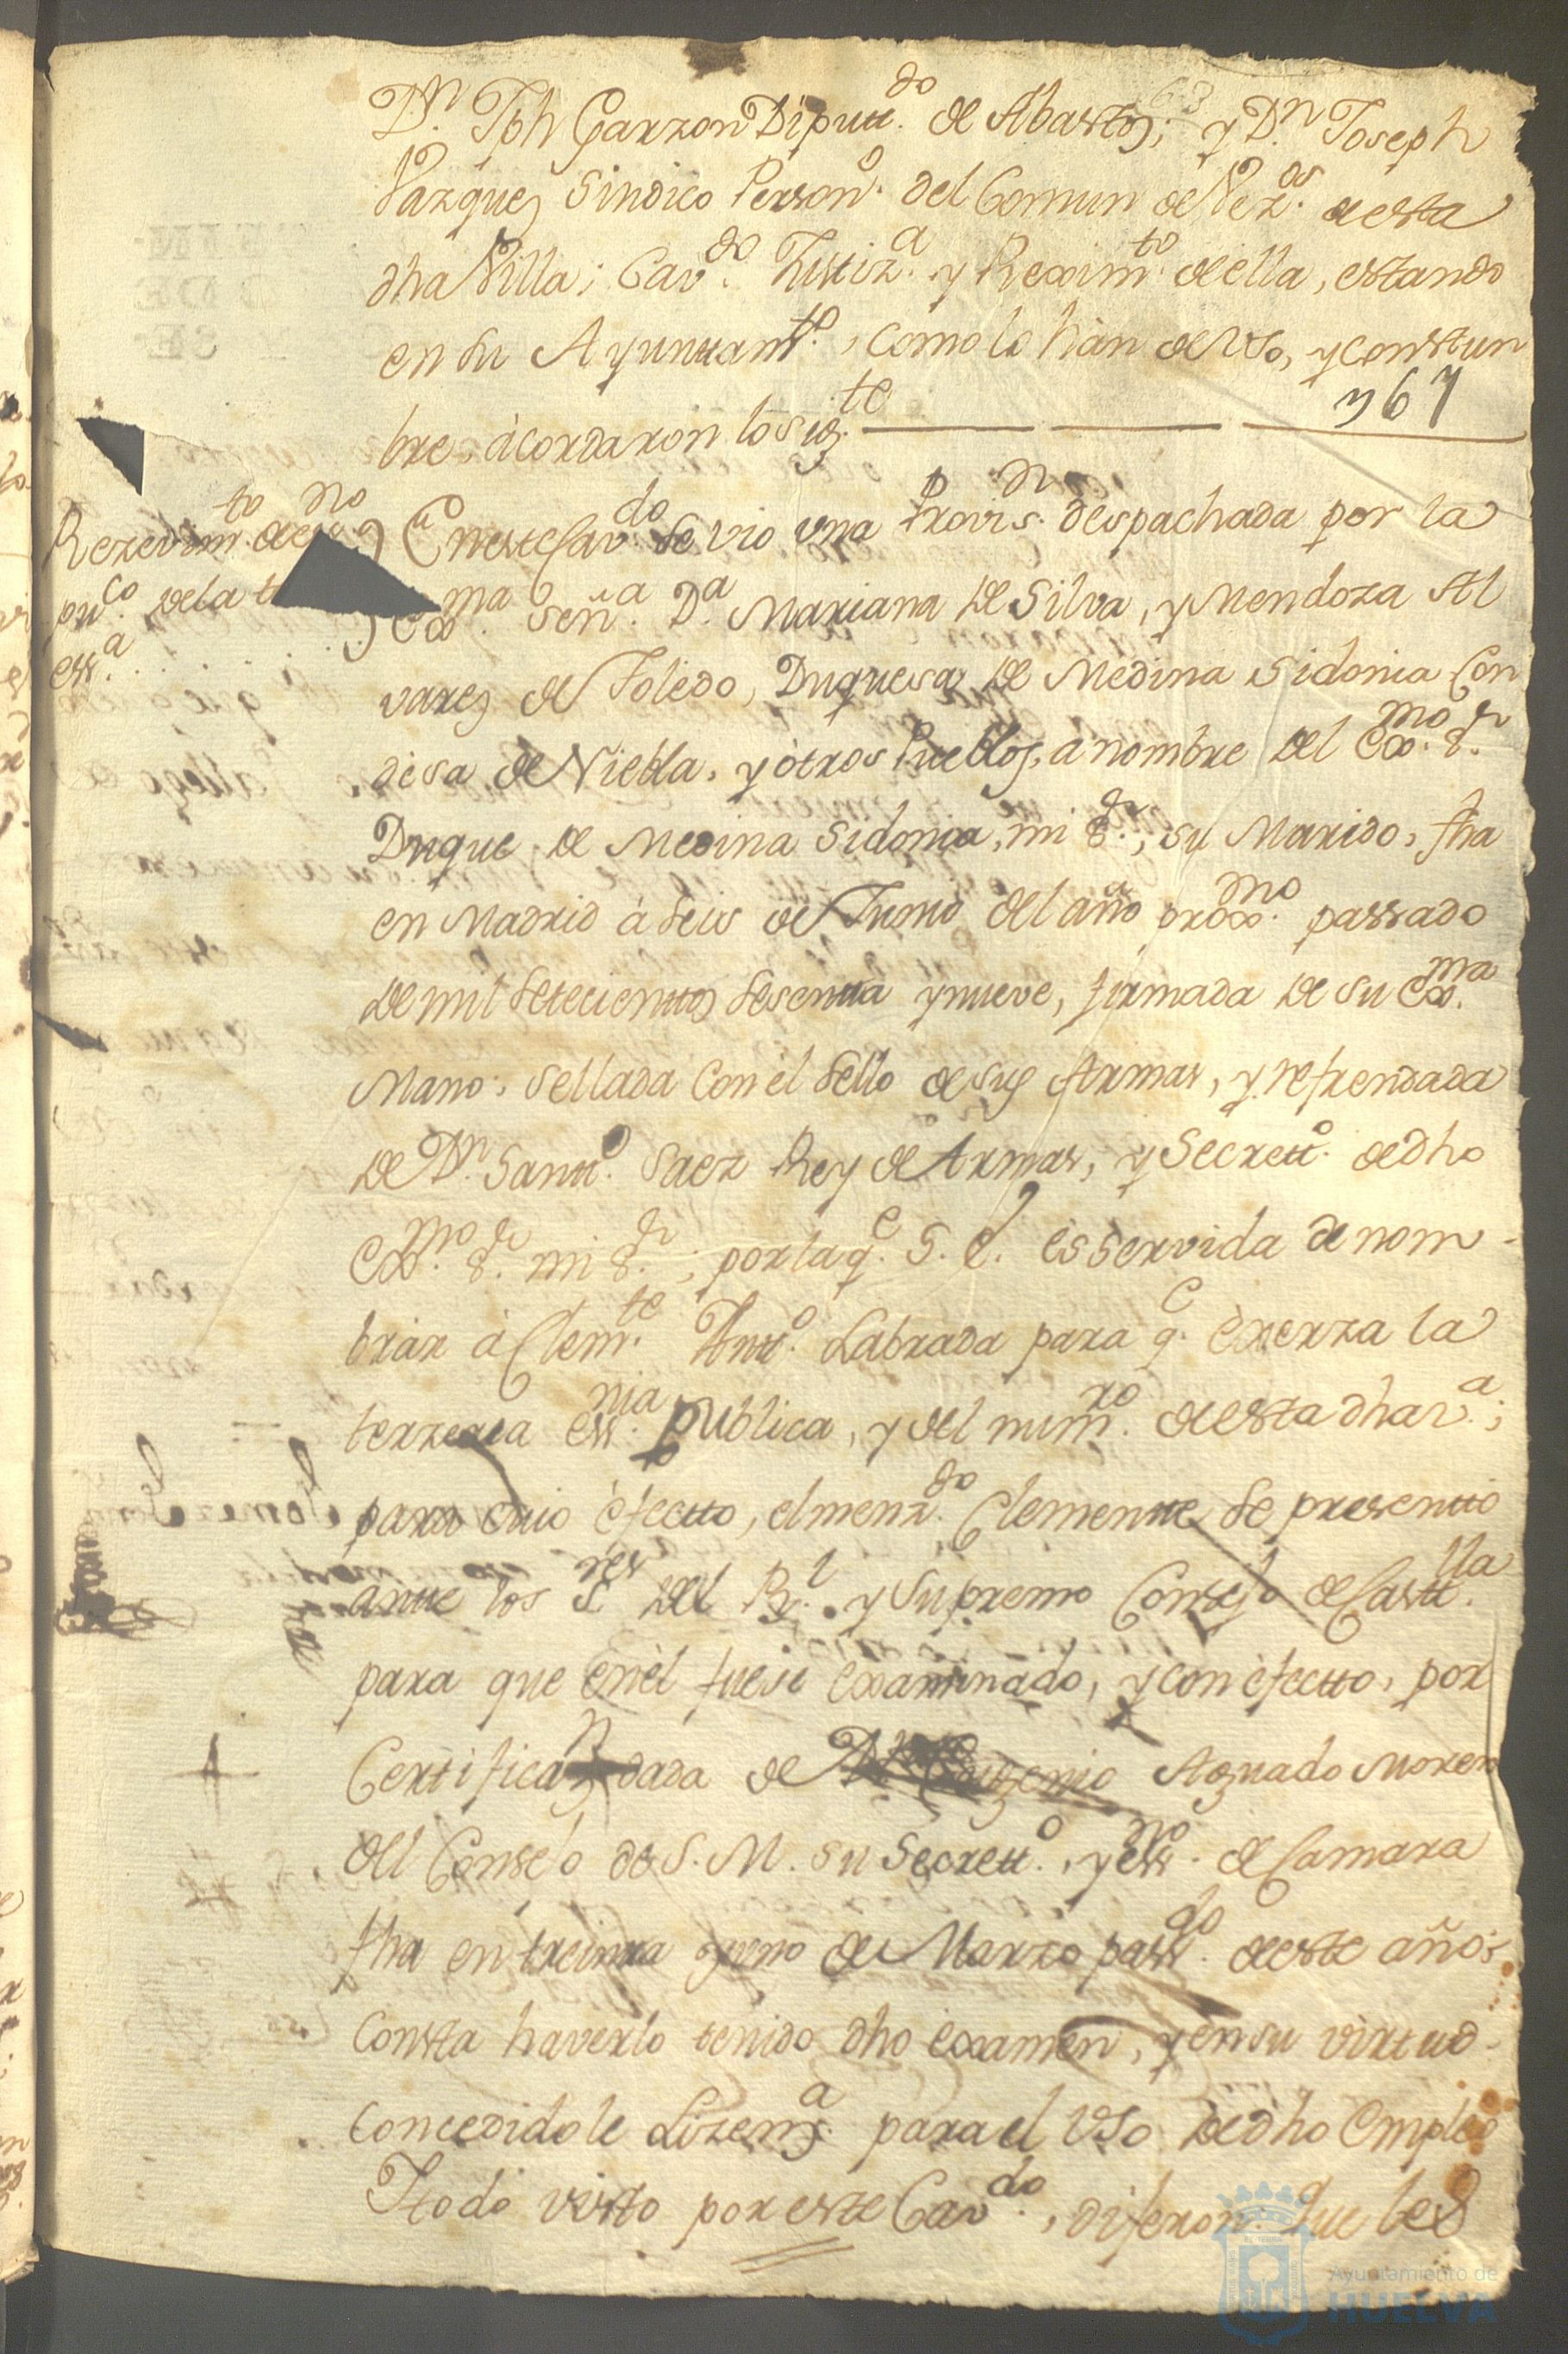 Dn. Jph Garzon Diputtdo. de Abastos; y Dn. Joseph
Vazquez Sindico Persono. del Comun de Vezos. de esta
dha Villa; Cavdo. Justiza. y Reximto. de ella, estando
en su Ayunttamto., como lo hàn de vso, y constum
bre, àcordaron lo sigte.
767
Rezevimto. de essno
puco. de la t
essa.
En este Cavdo. se vio vna Provisn. despachada por la
Exma. Señora. Da. Mariana de Silva, y Mendoza Al
varez de Toledo, Duquesa de Medina Sidonia Con
desa de Niebla, y òtros Pueblos, a nombre del Exmo. Sr.
Duque de Medina Sidonia, mi Sr., su Marido, fha
en Madrid à seis de Junio del año proxmo. passado
de mil setecienttos sesentta y nueve, firmada de su Exma.
Mano, sellada con èl sello de sus Armas, y refrendada
de Dn. Santto. Saez Rey de Armas, y Secretto. de dho
Exmo. Sr. mi Sr.; por la qe. S. E. es servida de nom-
brar à Clemte. Antto. Labrada para qe. èxerza la
terzera essnia. publica, y del numro. de esta dha va.;
para cuio èfectto, el menzdo. Clementte se presentto
antte los Sres. del Rl. y Supremo Consejo de Casttlla.
para que en èl fuese examinado, y con èfectto, por
Certificazn dada de Dn. Eugenio Aguado Moreno
del Consejo de S. M. su Secretto., y essno. de Camara
fha en treintta y uno de Marzo passdo. de este año:
Consta haverlo tenido dho examen, y en su virtud
concedidole Lizenza. para el vso de dho Empleo
Ytodo visto por este Cavdo., dijeron: Que les
Ayuntamiento de
HUELVA